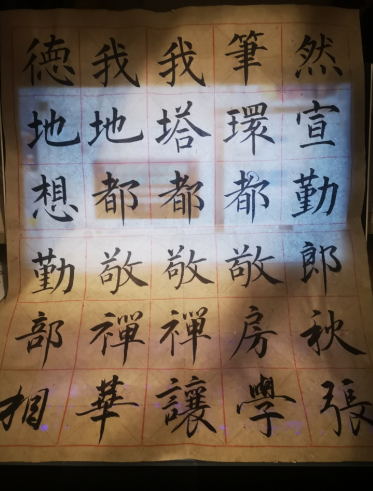 然宣勤郎秋張
筆環都敬房學
我塔都敬禪讓
我地都敬禪華
德地想勤部相